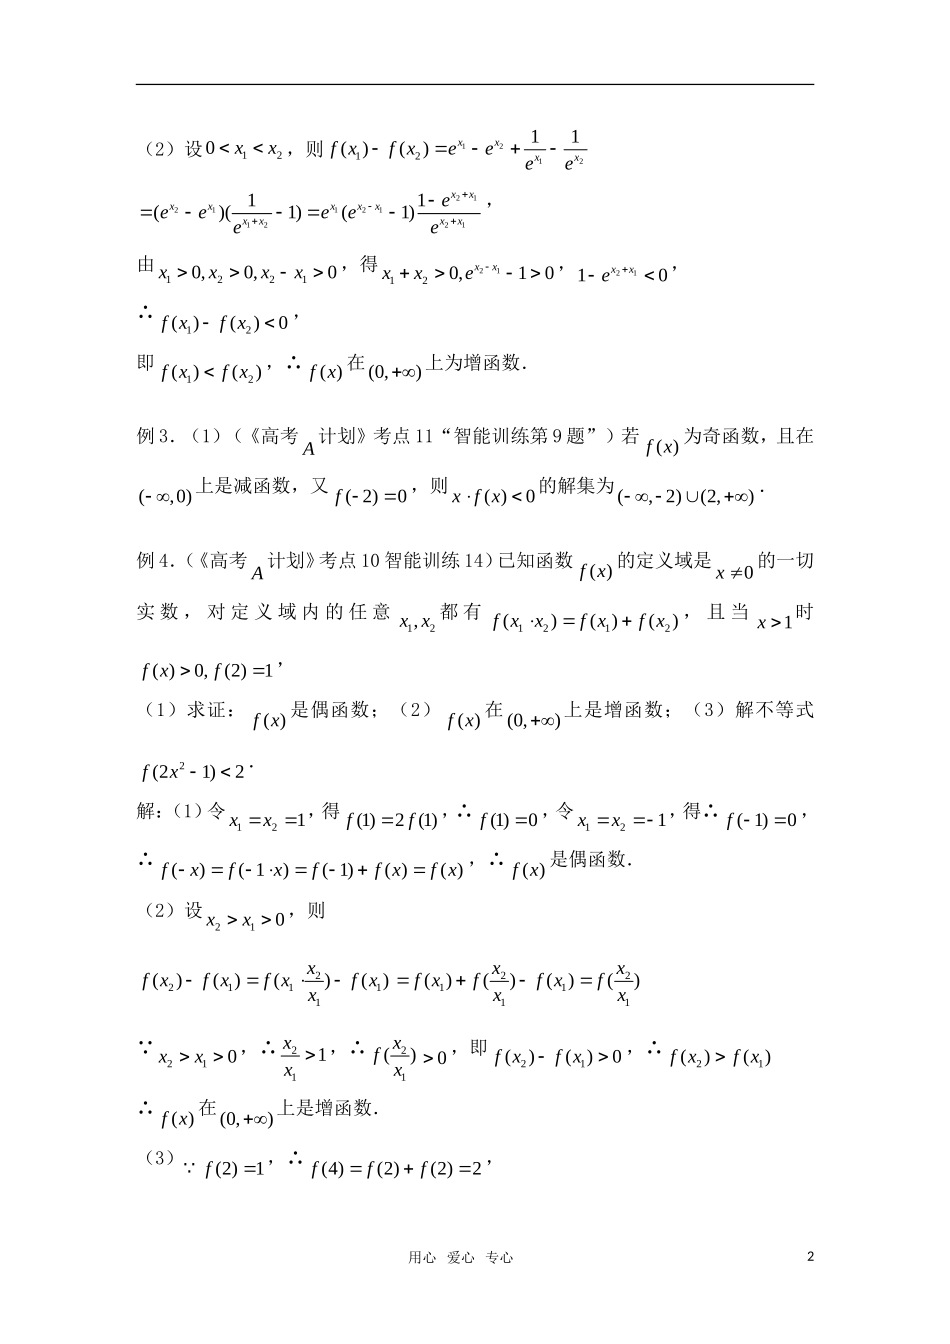 （2）设0 < x₁ < x₂，则 f(x₁) - f(x₂) = e^{x₁} - e^{x₂} + 1/e^{x₁} - 1/e^{x₂}
=(e^{x₂} - e^{x₁})(1/e^{x₁+x₂} - 1) = e^{x₁}(e^{x₂-x₁} - 1)(1 - e^{x₂+x₁})/e^{x₂+x₁}，
由 x₁ > 0, x₂ > 0, x₂ - x₁ > 0，得 x₁ + x₂ > 0, e^{x₂-x₁} - 1 > 0，1 - e^{x₂+x₁} < 0，
∴ f(x₁) - f(x₂) < 0，
即 f(x₁) < f(x₂)，∴ f(x) 在 (0, +∞) 上为增函数．
例 3．（1）（《高考 A 计划》考点 11“智能训练第 9 题”）若 f(x) 为奇函数，且在
(-∞,0) 上是减函数，又 f(-2) = 0，则 x·f(x) < 0 的解集为 (-∞,-2)∪(2,+∞)．
例 4．（《高考 A 计划》考点 10 智能训练 14）已知函数 f(x) 的定义域是 x ≠ 0 的一切
实数，对定义域内的任意 x₁, x₂ 都有 f(x₁·x₂) = f(x₁) + f(x₂)，且当 x > 1 时
f(x) > 0, f(2) = 1，
（1）求证：f(x) 是偶函数；（2）f(x) 在 (0,+∞) 上是增函数；（3）解不等式
f(2x² - 1) < 2．
解：（1）令 x₁ = x₂ = 1，得 f(1) = 2f(1)，∴ f(1) = 0，令 x₁ = x₂ = -1，得∴ f(-1) = 0，
∴ f(-x) = f(-1·x) = f(-1) + f(x) = f(x)，∴ f(x) 是偶函数．
（2）设 x₂ > x₁ > 0，则
f(x₂) - f(x₁) = f(x₁·x₂/x₁) - f(x₁) = f(x₁) + f(x₂/x₁) - f(x₁) = f(x₂/x₁)
∵ x₂ > x₁ > 0，∴ x₂/x₁ > 1，∴ f(x₂/x₁) > 0，即 f(x₂) - f(x₁) > 0，∴ f(x₂) > f(x₁)
∴ f(x) 在 (0,+∞) 上是增函数．
（3）∵ f(2) = 1，∴ f(4) = f(2) + f(2) = 2，
用心 爱心 专心 2